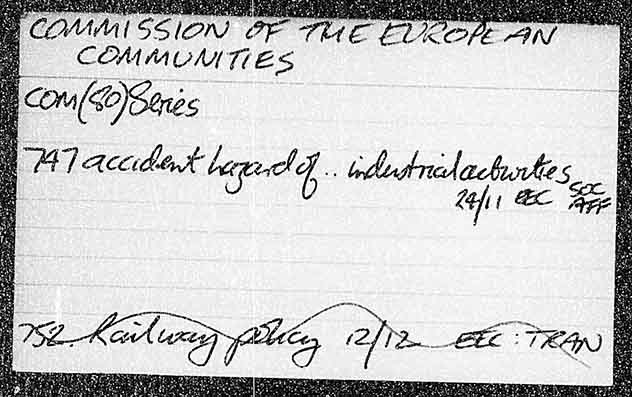 COMMISSION OF THE EUROPEAN
COMMUNITIES
COM(80) Series
747 accident hazard of .. industrial activities
24/11 EEC SOC
AFF
752. Railway policy 12/12 EEC : TRAN